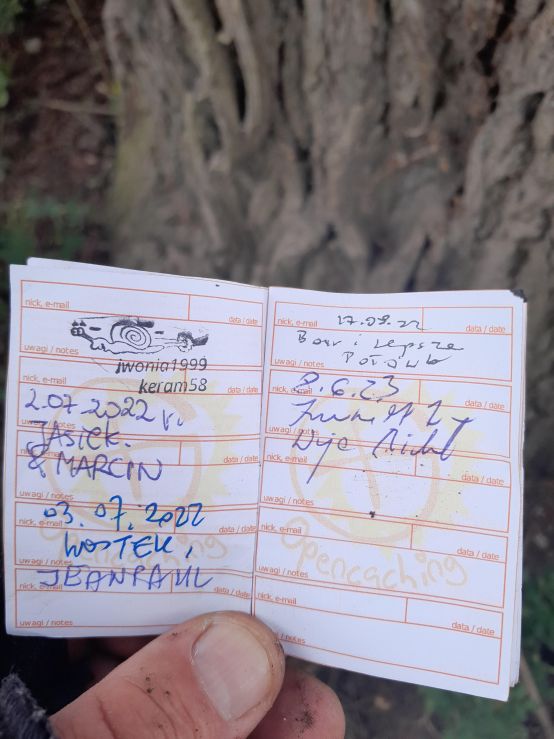 nick, e-mail data / data
uwagi / notes
iwonia1999
nick, e-mail
keram58 data / date
2.07.2022
uwagi / notes
JASIEK.
nick, e-mail data / date
& MARCIN
uwagi / notes
03.07.2022
nick, e-mail data / date
WOSTEK,
uwagi / notes
JEANPAUL
nick, e-mail data / date
uwagi / notes
nick, e-mail data / date
17.08.22
uwagi / notes
i Lepsze
Połówk
nick, e-mail data / date
8.6.23
uwagi / notes
nick, e-mail data / date
uwagi / notes
nick, e-mail data / date
uwagi / notes
opencaching
nick, e-mail data / date
/ notes